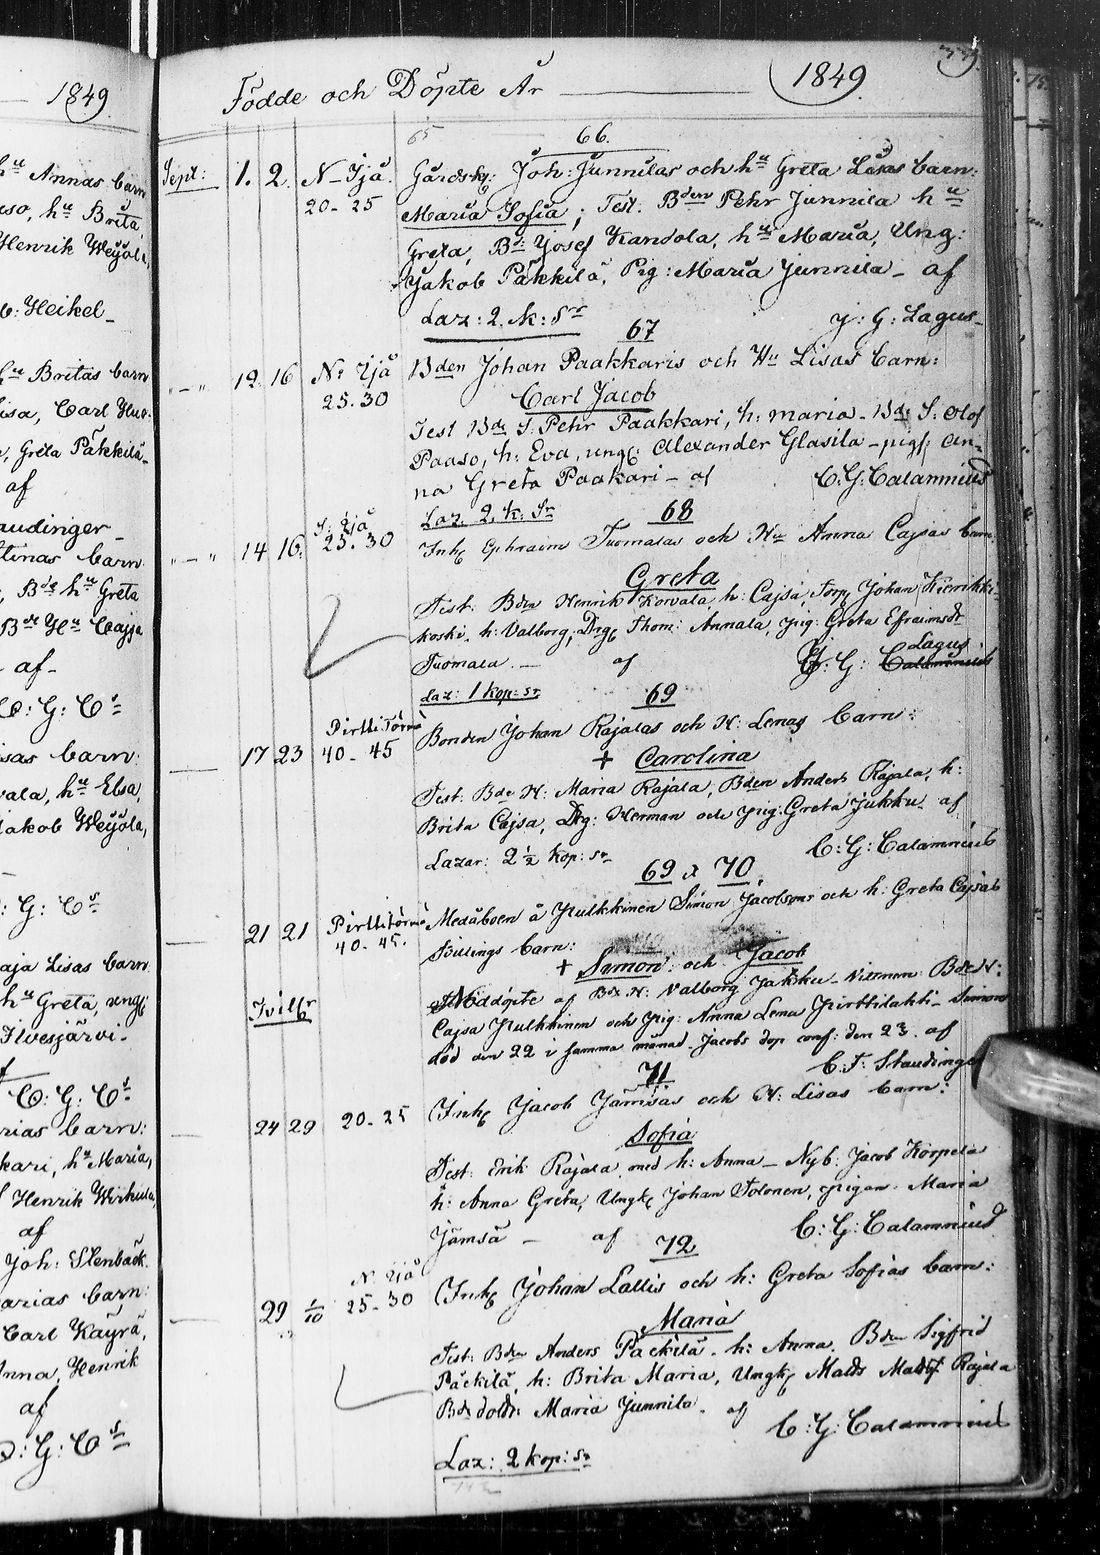 1849
hu Annas barn
hu Brita
Henrik Weyola,
Heikel
hu Britas barn
Lisa, Carl
Greta Päkkilä
af
audinger
tinas barn
Bde hu Greta
Bde Hu Cajsa
af
C: G: Cs
isas barn:
vala, hu Elsa,
Jakob Weyola,
: G: Cs
aja Lisas barn
hu Greta, ungk
Ilvesjärvi
C: G: Cs
rias barn:
kari, hu Maria,
Henrik Wirkula,
af
Joh: Stenbäck
arias barn:
Carl Käyrä,
Anna, Henrik
af
C: G: Cs
Födde och Döpte År 1849
65 66.
Sept: 1. 2. N Ijå 20-25
Gårdsk: Joh: Junnilas och hu Greta Lisas barn:
Maria Sofia; Test. Bden Pehr Junnila hu
Greta, Bd: Josef Kandola, hu Maria, Ung:
Jakob Päkkilä, Pig: Maria Junnila af
Laz: 2. k: Sr J: G: Lagus
67
12 16 N: Ijå 25.30
Bden Johan Paakkaris och Hu Lisas barn:
Carl Jacob
Test Bde S. Pehr Paakkari, h: Maria. Bde S. Olof
Paaso, h: Eva, ungk: Alexander Glasila pig: An-
na Greta Paakari af C: G: Calamnius
Laz 2. k: Sr 68
14 16. S: Ijå 25.30
Inh: Ephraim Tuomalas och Hu Anna Cajsas barn
Greta
Test: Bden Henrik Korvala, h: Cajsa, Torp Johan Kierikki-
koski, h: Valborg, Drg Thom: Annala, pig: Greta Efraimsdr
Tuomala af J: G: Calamnius Lagus
Laz: 1 kop: Sr 69
17 23 Pirttitörmä 40-45
Bonden Johan Rajalas och H: Lenas barn:
+ Carolina
Test: Bde H: Maria Rajala, Bden Anders Rajala, h:
Brita Cajsa, Drg: Herman och pig: Greta Jukku af
Lazar: 2 1/2 kop: Sr C: G: Calamnius
69 & 70.
21 21 Pirttitörmä 40-45.
Medåboen å Pulkkinen Simon Jacobsons och h: Greta Cajsas
Billings barn:
+ Simon: och Jacob
Tvillr
Nöddöpte af Bde H: Valborg Jakku. Vittnen: Bde H:
Cajsa Pulkkinen och pig: Anna Lena Pirttilahti Simon
död den 22 i samma månad. Jacobs dop conf: den 23. af
C. F. Staudinger
71
24 29 20-25
Inh: Jacob Jämsäs och H: Lisas barn:
Sofia
Test: Erik Rajala med h: Anna Nyb: Jacob Korpela
h: Anna Greta, Ungk Johan Tolonen, pigan Maria
Jämsä af C: G: Calamnius
72
29 1/10 N. Ijå 25-30
Inh: Johan Lallis och h: Greta Sofias barn:
Maria
Test: Bden Anders Päckilä. h: Anna, Bden Sigfrid
Päckilä, h: Brita Maria, Ungk Matts Rajala
Bdedottr: Maria Junnila. af C: G: Calamnius
Laz: 2 kop: Sr